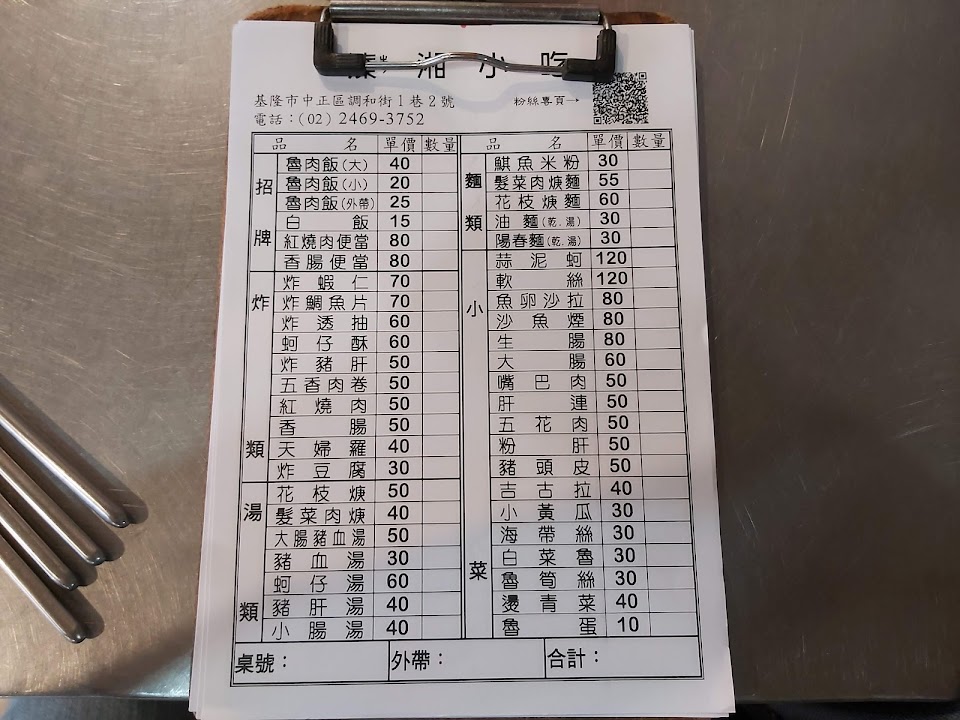 湘小吃
基隆市中正區調和街1巷2號
粉絲專頁→
電話：(02) 2469-3752
品名 單價 數量
招牌
魯肉飯(大) 40
魯肉飯(小) 20
魯肉飯(外帶) 25
白飯 15
紅燒肉便當 80
香腸便當 80
炸類
炸蝦仁 70
炸鯛魚片 70
炸透抽 60
蚵仔酥 60
炸豬肝 50
五香肉卷 50
紅燒肉 50
香腸 50
天婦羅 40
炸豆腐 30
湯類
花枝焿 50
髮菜肉焿 40
大腸豬血湯 50
豬血湯 30
蚵仔湯 60
豬肝湯 40
小腸湯 40
品名 單價 數量
麵類
鯕魚米粉 30
髮菜肉焿麵 55
花枝焿麵 60
油麵(乾.湯) 30
陽春麵(乾.湯) 30
小菜
蒜泥蚵 120
軟絲 120
魚卵沙拉 80
沙魚煙 80
生腸 80
大腸 60
嘴巴肉 50
肝連 50
五花肉 50
粉肝 50
豬頭皮 50
吉古拉 40
小黃瓜 30
海帶絲 30
白菜魯 30
魯筍絲 30
燙青菜 40
魯蛋 10
桌號：
外帶：
合計：